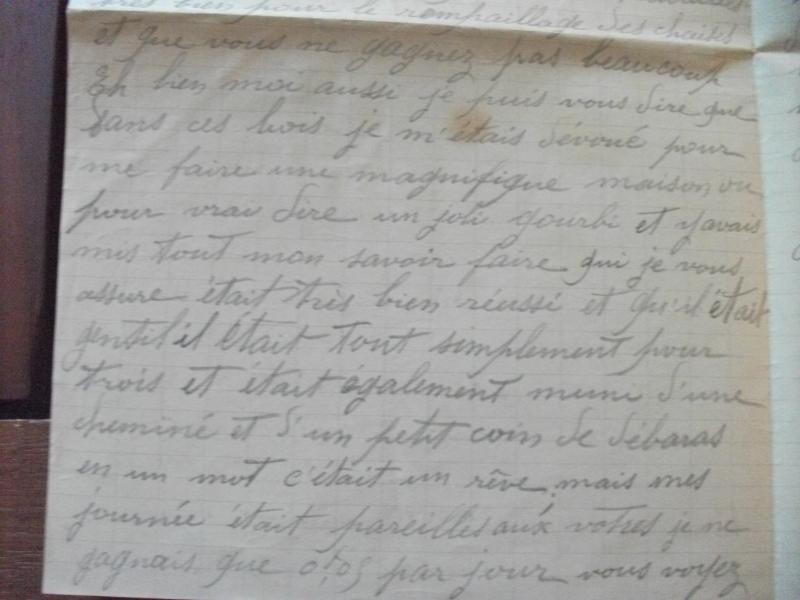 très bien pour le rempaillage des chaises
et que vous ne gagnez pas beaucoup
Eh bien moi aussi je puis vous dire que
dans ces bois je m'étais dévoué pour
me faire une magnifique maison ou
pour vrai dire un joli gourbi et y avais
mis tout mon savoir faire qui je vous
assure était très bien réussi et qu'il était
gentil il était tout simplement pour
trois et était également muni d'une
cheminé et d'un petit coin de débaras
en un mot c'était un rêve, mais mes
journée était pareilles aux votres je ne
gagnais que 0f,05 par jour vous voyez